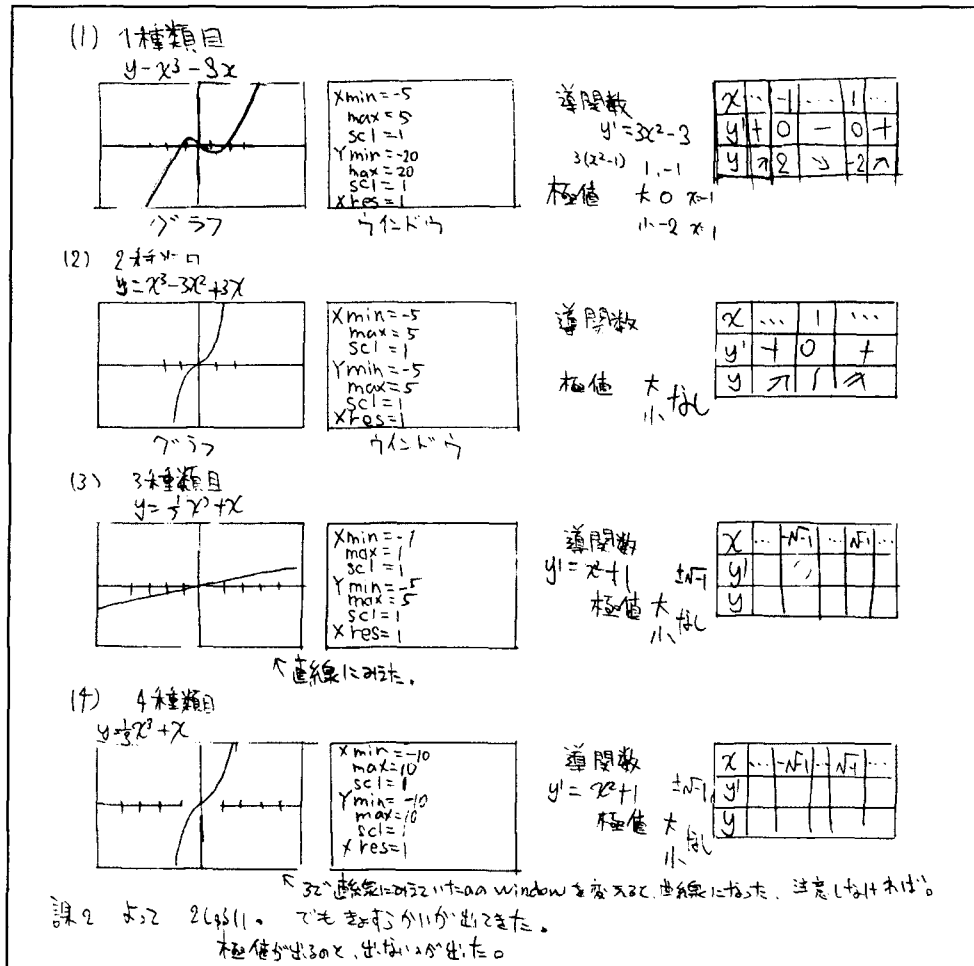 (1) 1種類目
y-x³-3x
Xmin=-5
max=5
scl=1
Ymin=-20
max=20
scl=1
Xres=1
グラフ
ウインドウ
導関数
y'=3x²-3
3(x²-1) 1,-1
極値 大 0 x-1
小-2 x 1
x … -1 … 1 …
y' + 0 - 0 +
y ↗ 2 ↘ -2 ↗
(2) 2
y=x³-3x²+3x
Xmin=-5
max=5
scl=1
Ymin=-5
max=5
scl=1
Xres=1
グラフ
ウインドウ
導関数
極値 大
小 なし
x … 1 …
y' + 0 +
y ↗ 1 ↗
(3) 3種類目
y= x³+x
Xmin=-1
max=1
scl=1
Ymin=-5
max=5
scl=1
Xres=1
導関数
y'=x²+1 ±√-1
極値 大
小 なし
x … -√-1 … √-1 …
y'
y
↖直線にみえた。
(4) 4種類目
y=⅓x³+x
Xmin=-10
max=10
scl=1
Ymin=-10
max=10
scl=1
Xres=1
導関数
y'=x²+1 ±√-1
極値 大
小 なし
x … -√-1 … √-1 …
y'
y
↖ 3で直線にみえていたaa windowを変えると、曲線になった、注意しなければ。
課2 よって 2しゅるい。 でもきょすうかいが出てきた。
極値が出るのと、出ないのが出た。